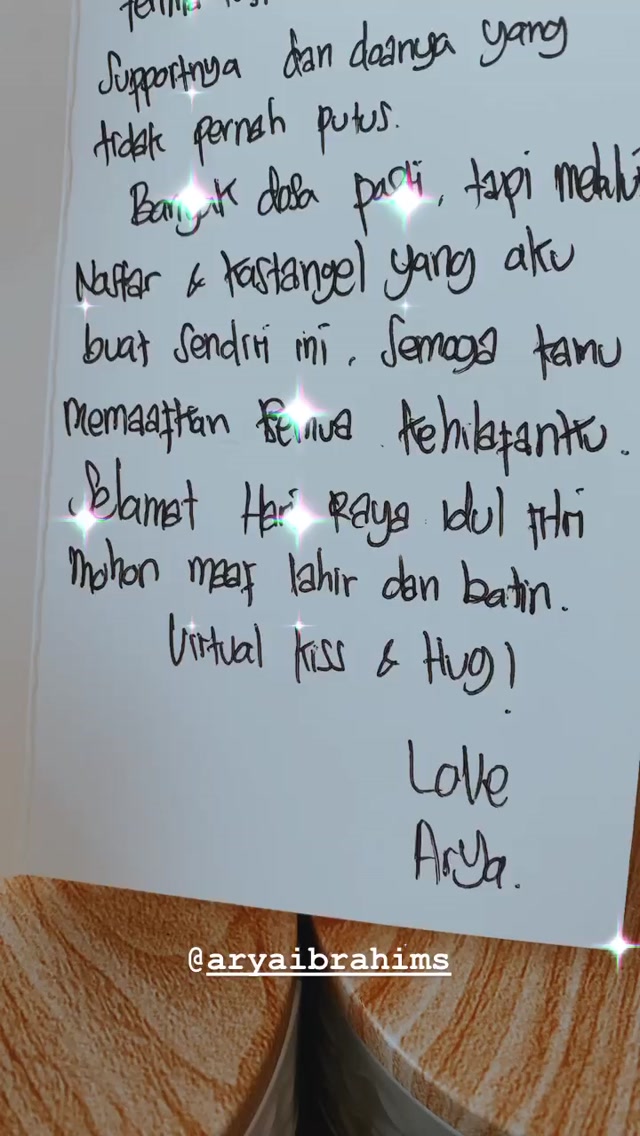 Supportnya dan doanya yang
tidak pernah putus.
Banyak dosa pasti, tapi melalui
Nastar & kastangel yang aku
buat sendiri ini, Semoga kamu
memaafkan semua kehilafanku.
Selamat Hari Raya Idul Fitri
mohon maaf lahir dan batin.
Virtual kiss & Hug!
Love
Arya.
@aryaibrahims